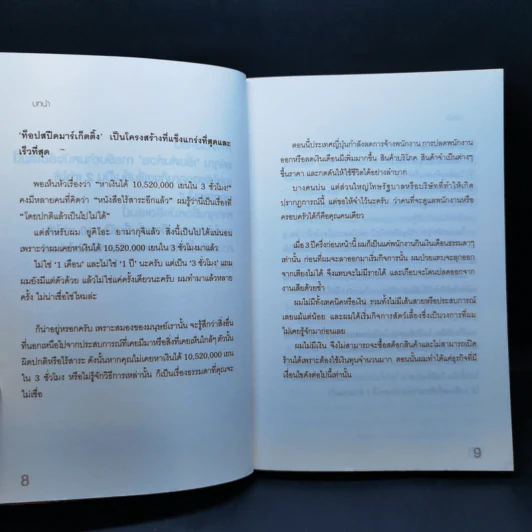 บทนำ
'ท็อปสปีดมาร์เก็ตติ้ง' เป็นโครงสร้างที่แข็งแกร่งที่สุดและ
เร็วที่สุด
พอเห็นหัวเรื่องว่า "หาเงินได้ 10,520,000 เยนใน 3 ชั่วโมง!"
คงมีหลายคนที่คิดว่า "หนังสือไร้สาระอีกแล้ว" ผมรู้ว่านี่เป็นเรื่องที่
"โดยปกติแล้วเป็นไปไม่ได้"
แต่สำหรับผม ยูคิโอะ ยามากุจิแล้ว สิ่งนี้เป็นไปได้แน่นอน
เพราะว่าผมเคยหาเงินได้ 10,520,000 เยนใน 3 ชั่วโมงมาแล้ว
ไม่ใช่ '1 เดือน' และไม่ใช่ '1 ปี' นะครับ แต่เป็น '3 ชั่วโมง' แถม
ผมยังมีแค่ตัวด้วย แล้วไม่ใช่แค่ครั้งเดียวนะครับ ผมทำมาแล้วหลาย
ครั้ง ไม่น่าเชื่อใช่ไหมล่ะ
ก็น่าอยู่หรอกครับ เพราะสมองของมนุษย์เรานั้น จะรู้สึกว่าสิ่งอื่น
ที่นอกเหนือไปจากประสบการณ์ที่เคยมีมาหรือสิ่งที่เคยเห็นใกล้ๆ ตัวนั้น
ผิดปกติหรือไร้สาระ ดังนั้นหากคุณไม่เคยหาเงินได้ 10,520,000 เยน
ใน 3 ชั่วโมง หรือไม่รู้จักวิธีการเหล่านั้น ก็เป็นเรื่องธรรมดาที่คุณจะ
ไม่เชื่อ
8
ตอนนี้ประเทศญี่ปุ่นกำลังลดการจ้างพนักงาน การปลดพนักงาน
ออกหรือลดเงินเดือนมีเพิ่มมากขึ้น สินค้าบริโภค สินค้าจำเป็นต่างๆ
ขึ้นราคา และกดดันให้ใช้ชีวิตได้อย่างลำบาก
บางคนบ่น แต่ส่วนใหญ่โทษรัฐบาลหรือบริษัทที่ทำให้เกิด
ปรากฏการณ์นี้ แต่ขอให้จำไว้นะครับ ว่าคนที่จะดูแลพนักงานหรือ
ครอบครัวได้ก็คือคุณคนเดียว
เมื่อ 3 ปีครึ่งก่อนหน้านี้ ผมก็เป็นแค่พนักงานกินเงินเดือนธรรมดาๆ
เท่านั้น ก่อนที่ผมจะลาออกมาเริ่มกิจการนั้น ผมป่วยแทบจะลุกออก
จากเตียงไม่ได้ จึงแทบจะไม่มีรายได้ และเกือบจะโดนปลดออกจาก
งานเสียด้วยซ้ำ
ผมไม่มีทั้งเทคนิคหรือเงิน รวมทั้งไม่มีเส้นสายหรือประสบการณ์
เลยแม้แต่น้อย และผมได้เริ่มกิจการสัตว์เลี้ยงซึ่งเป็นวงการที่ผม
ไม่เคยรู้จักมาก่อนเลย
ผมไม่มีเงิน จึงไม่สามารถจะซื้อสต็อกสินค้าและไม่สามารถเปิด
ร้านได้เพราะต้องใช้เงินทุนจำนวนมาก ตอนนั้นผมทำได้แค่ธุรกิจที่มี
เงื่อนไขดังต่อไปนี้เท่านั้น
9